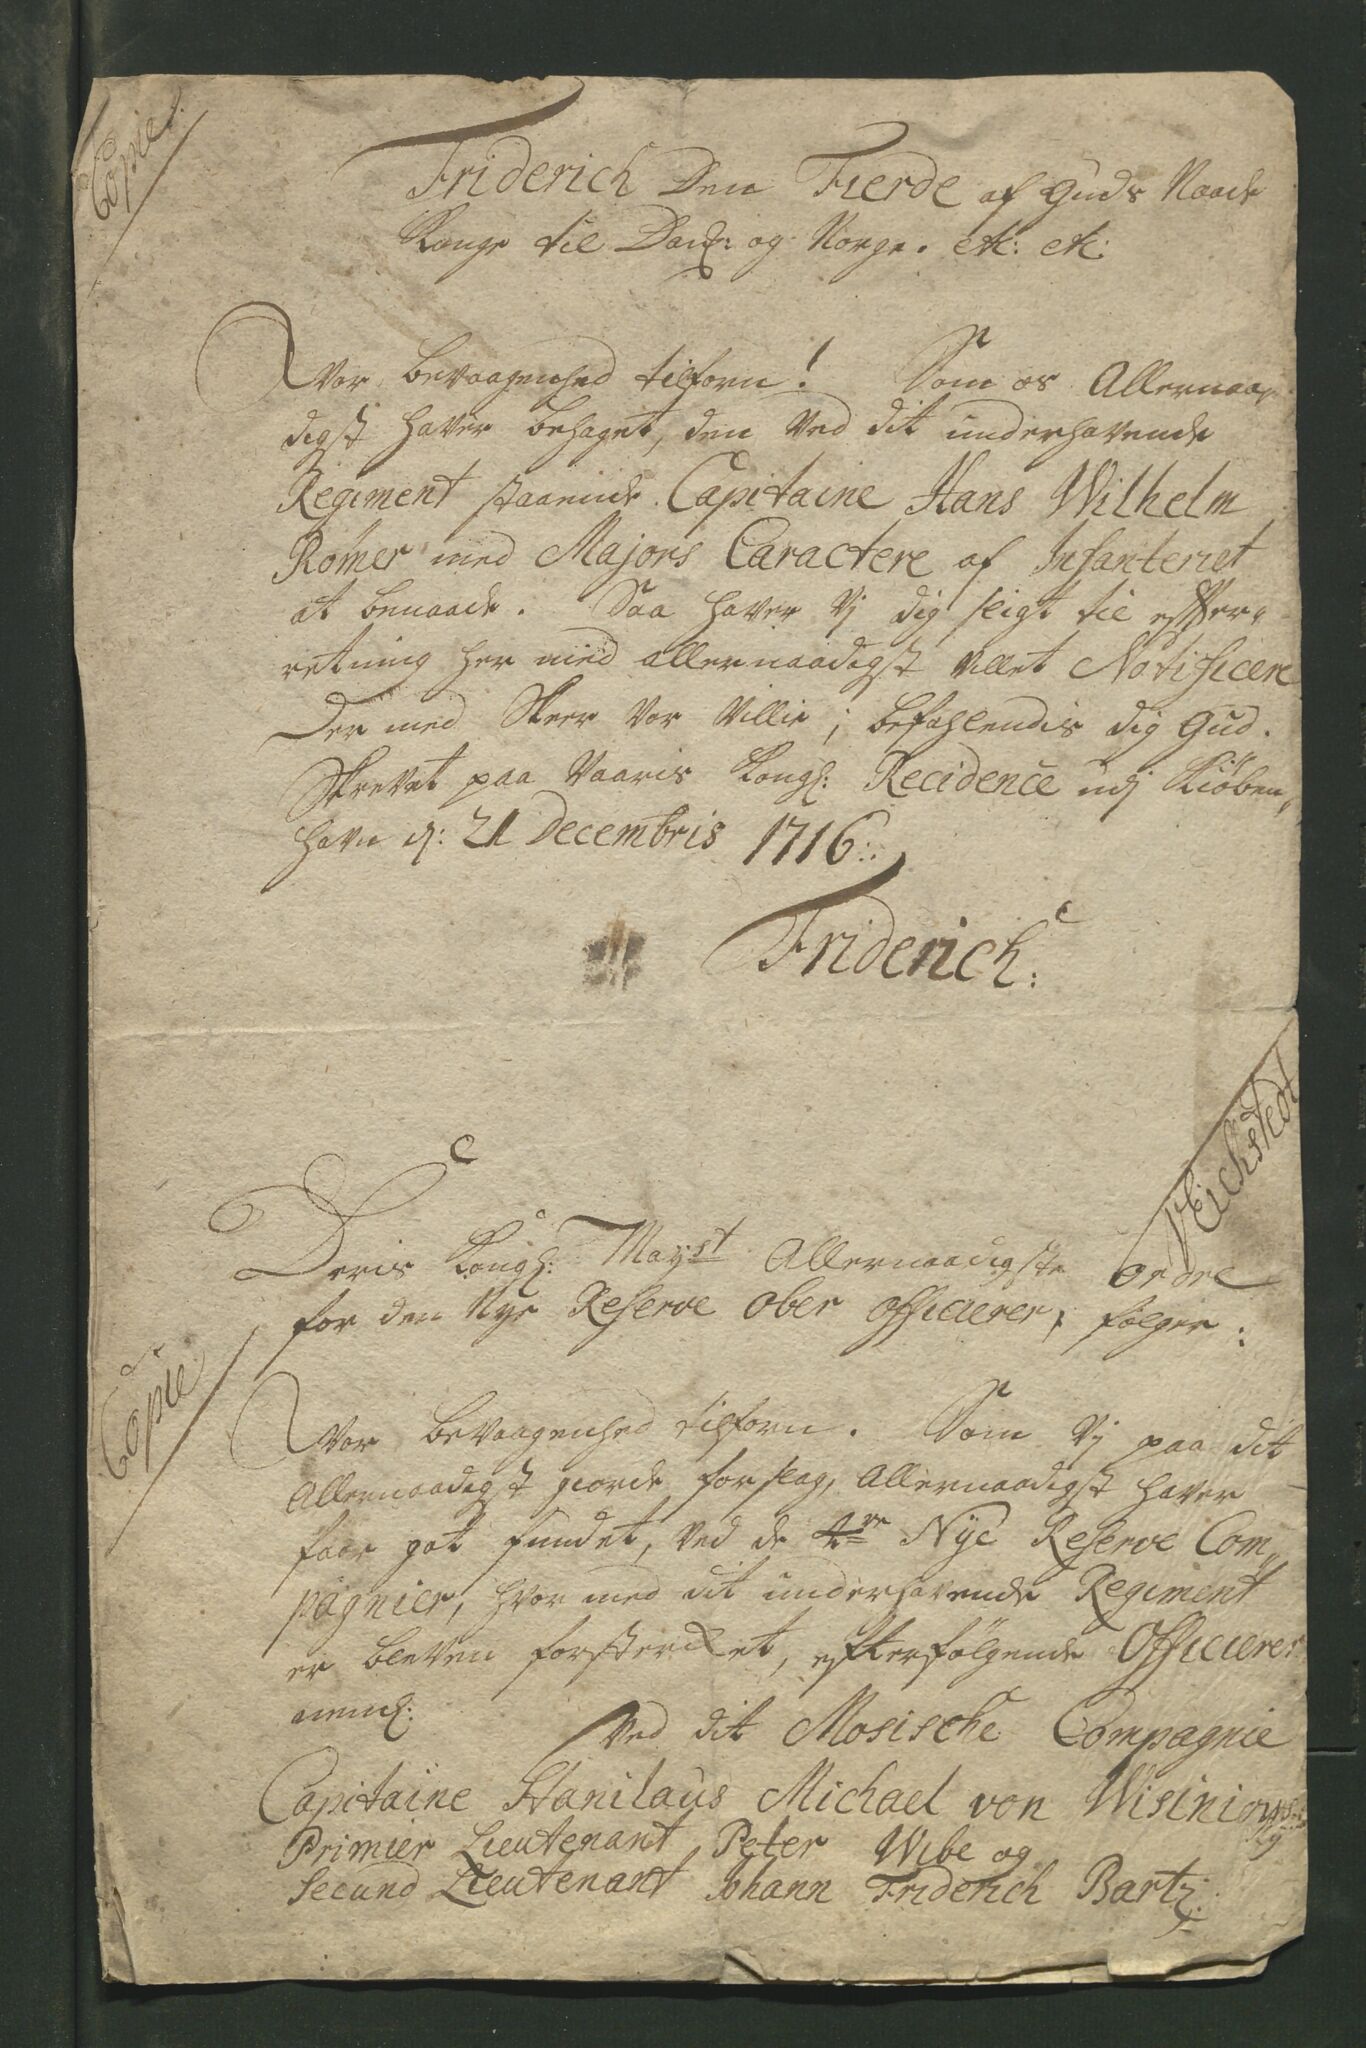 Copie:
Friderich Den Fierde af Guds Naade
Konge til Dan: og Norge. etc: etc:
Vor bevaagenhed tilforn! Som os Allernaa-
digst haver behaget, den Ved dit underhavende
Regiment staaende Capitaine Hans Wilhelm
Römer med Majors Caractere af Infanteriet
at benaade. Saa haver Vj dig sligt til effter-
retning her med allernaadigst villet Notificere
Der med Skeer Vor Villie; befahlendis dig Gud.
Skrevet paa Vaaris Kongl: Recidence udj Kiøben„
havn d: 21 Decembris 1716:
Friderich:
V Eichstedt
Deris Kongl: Mayst Allernaadigste ordre
for den Nye Reserve Ober Officierer, følger:
Copie:
Vor bevaagenhed tilforn. Som Vj paa dit
Allernaadigst giorde forslag, Allernaadigst haver
faar got fundet, Ved de 4re Nye Reserve Com„
pagnier, hvor med dit underhavende Regiment
er bleven forstercket, efterfølgende Officierer
neml:
Ved dit Mosische Compagnie
Capitaine Stanilaus Michael von Wisiniowsky
Primier Lieutenant Peter Wibe og
Secund Lieutenant Johann Friderich Bartz: